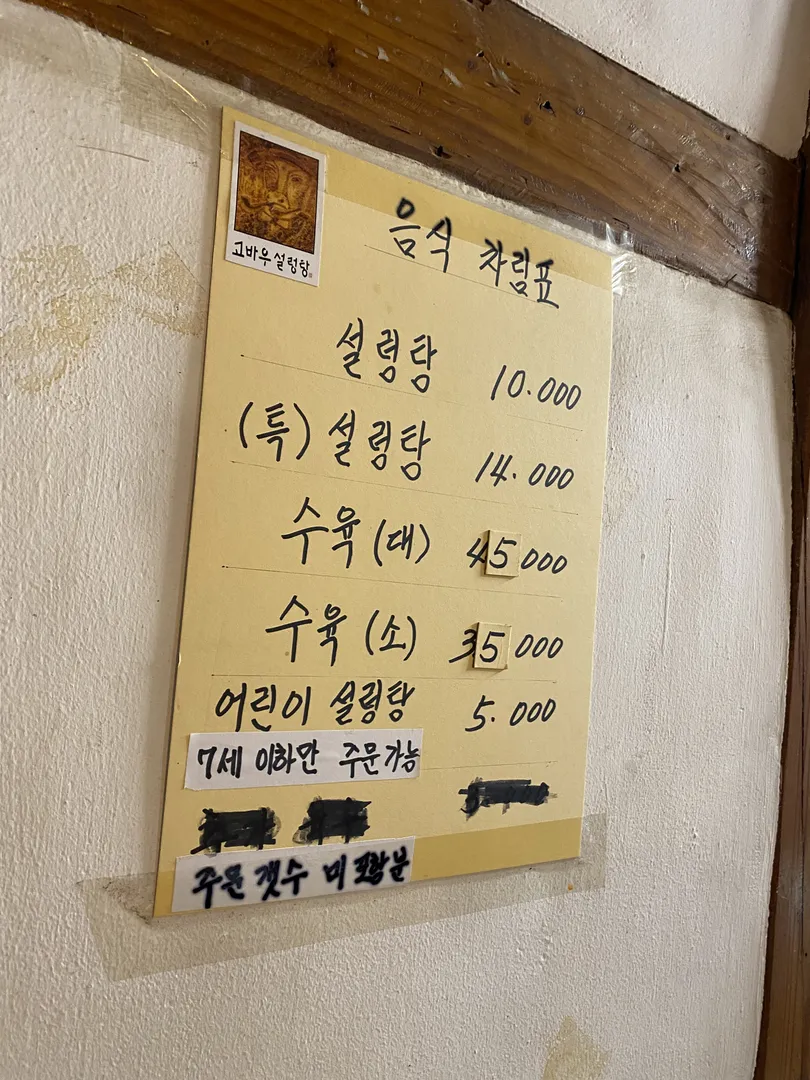 고바우설렁탕
음식 차림표
설렁탕 10.000
(특) 설렁탕 14.000
수육 (대) 45000
수육 (소) 35000
어린이 설렁탕 5.000
7세 이하만 주문가능
주문 갯수 미 포함분